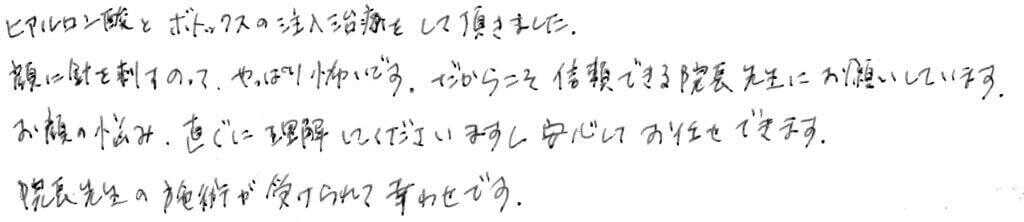 ヒアルロン酸とボトックスの注入治療をして頂きました。
顔に針を刺すのって、やっぱり怖いです。だからこそ信頼できる院長先生にお願いしています。
お顔の悩み、直ぐに理解してくださいますし安心してお任せできます。
院長先生の施術が受けられて幸わせです。